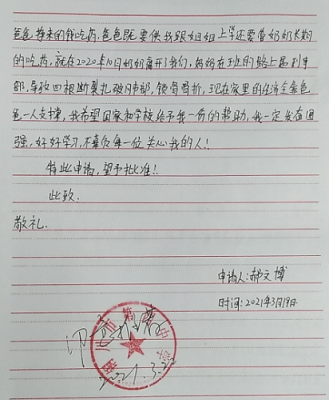 爸爸拿来的钱吃药。爸爸既要供我跟姐姐上学还要管奶奶长期
的吃药，就在2020年10月奶奶离开了我们，妈妈在班的路上
部，导致四根断裂扎破内部，锁骨骨折，现在家里的经济全靠爸
爸一人支撑，我希望国家和学校给予我一份的帮助，我一定发奋图
强，好好学习，不辜负每一位关心我的人！
特此申请，望予批准！
此致
敬礼
申请人：郝文博
时间：2021年3月19日
2021.3.22